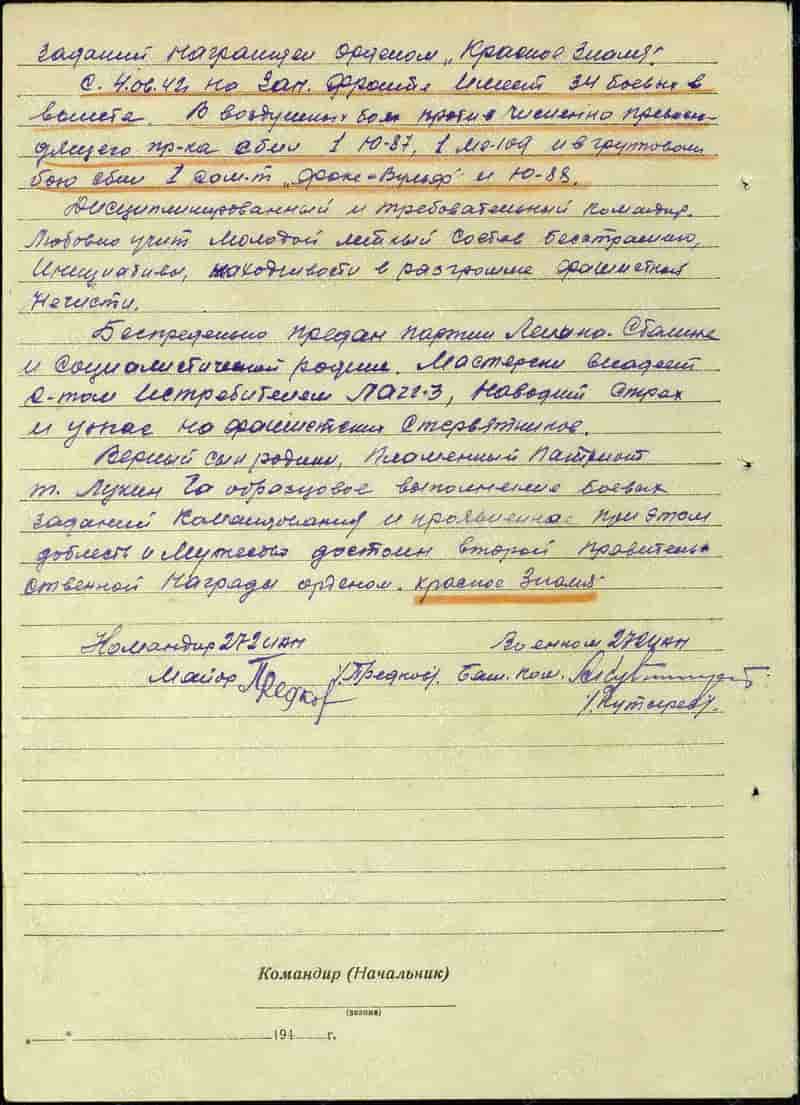 заданий награжден орденом „Красное Знамя".
С 4.06.42г на Зап. фронте имеет 34 боевых в
вылета. В воздушных боях против численно превосхо-
дящего пр-ка сбил 1 Ю-87, 1 ме-109 и в групповом
бою сбил 1 сам-т „Фоке-Вульф" и Ю-88.
Дисциплинированный и требовательный командир.
Любовно учит молодой летный состав бесстрашию,
инициативы, находчивости в разгроме фашистской
нечисти.
Беспредельно предан партии Ленина-Сталина
и социалистической родине. Мастерски владеет
с-том истребителем ЛАГГ-3, наводит страх
и ужас на фашистских стервятников.
Верный сын родины, пламенный патриот
т. Лукин за образцовое выполнение боевых
заданий командования и проявленная при этом
доблесть и мужество достоин второй правитель-
ственной награды орденом. Красное Знамя.
Командир 272 иап Военком 272 иап
Майор /Предков/. Бат. ком.
Командир (Начальник)
(звание)
„ " 194 г.